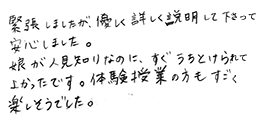 緊張しましたが、優しく詳しく説明して下さって
安心しました。
娘が人見知りなのに、すぐうちとけられて
よかったです。体験授業の方もすごく
楽しそうでした。